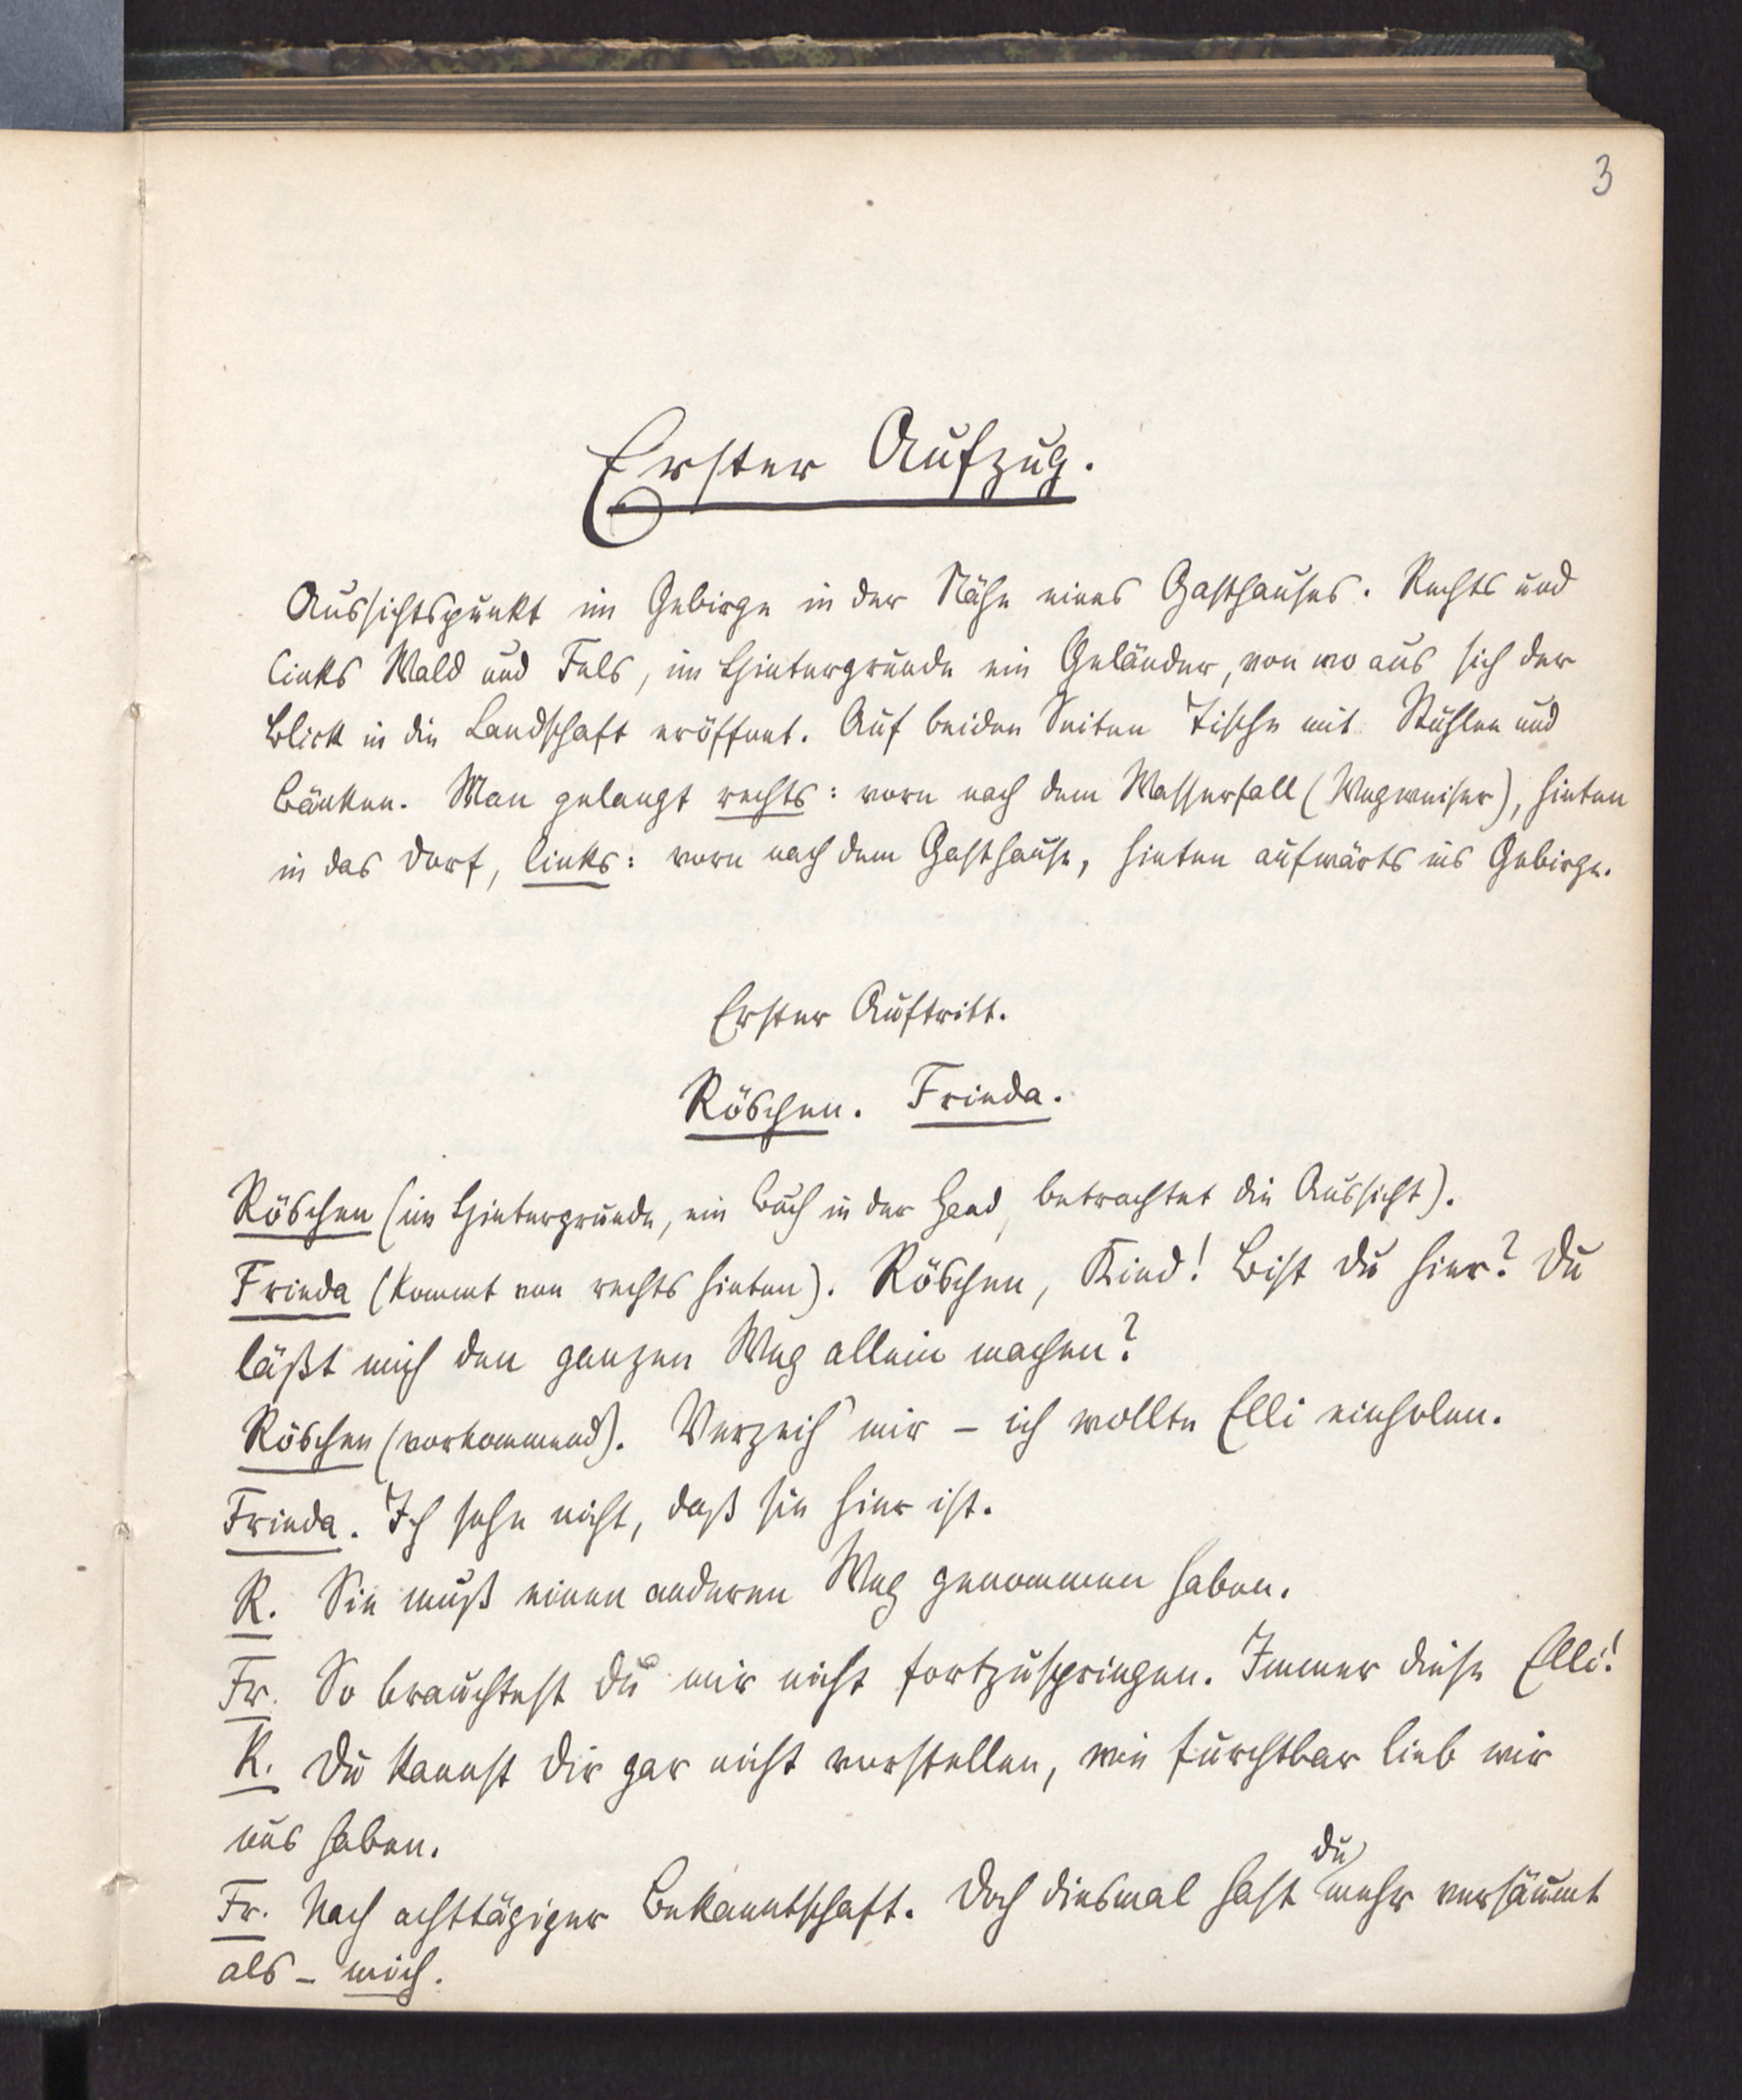 3
Erster Aufzug.
Aussichtspunkt im Gebirge in der Nähe eines Gasthauses. Rechts und
links Wald und Fels, im Hintergrunde ein Geländer, von wo aus sich der
Blick in die Landschaft eröffnet. Auf beiden Seiten Tische mit Stühlen und
Bänken. Man gelangt rechts: vorn nach dem Wasserfall (Wegweiser), hinten
in das Dorf, links: vorn nach dem Gasthause, hinten aufwärts ins Gebirge.
Erster Auftritt.
Röschen. Frieda.
Röschen (im Hintergrunde, ein Buch in der Hand, betrachtet die Aussicht).
Frieda (kommt von rechts hinten). Röschen, Kind! Bist du hier? Du
läßt mich den ganzen Weg allein machen?
Röschen (vorkommend). Verzeih' mir – ich wollte Elli einholen.
Frieda. Ich sehe nicht, daß sie hier ist.
R. Sie muß einen anderen Weg genommen haben.
Fr. So brauchtest du mir nicht fortzuspringen. Immer diese Elli!
R. Du kannst dir gar nicht vorstellen, wie furchtbar lieb wir
uns haben.
Fr. Nach achttägiger Bekanntschaft. Doch diesmal hast du mehr versäumt
als – mich.